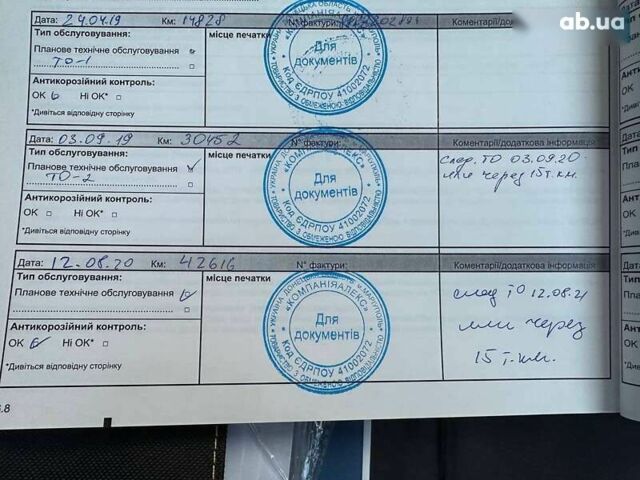 ab.ua
Дата: 24.04.19 Км: 14828 N° фактури: Коментарі/до
Тип обслуговування: місце печатки
Планове технічне обслуговування
ТО-1
Антикорозійний контроль:
ОК Ні ОК*
*Дивіться відповідну сторінку
Для
документів
Код ЄДРПОУ 41002072
ТОВАРИСТВО З ОБМЕЖЕНОЮ ВІДПОВІДАЛЬНІСТЮ
Дата: 03.09.19 Км: 30452 N° фактури: Коментарі/додаткова інформація
Тип обслуговування: місце печатки
Планове технічне обслуговування
ТО-2
Антикорозійний контроль:
ОК Ні ОК*
*Дивіться відповідну сторінку
«КОМПАНІЯАЛЕКС»
Для
документів
Код ЄДРПОУ 41002072
ТОВАРИСТВО З ОБМЕЖЕНОЮ ВІДПОВІДАЛЬНІСТЮ
след. ТО 03.09.20.
или через 15т.км.
Дата: 12.08.20 Км: 42616 N° фактури: Коментарі/додаткова інформація
Тип обслуговування: місце печатки
Планове технічне обслуговування
Антикорозійний контроль:
ОК Ні ОК*
*Дивіться відповідну сторінку
«КОМПАНІЯАЛЕКС»
Для
документів
Код ЄДРПОУ 41002072
ТОВАРИСТВО З ОБМЕЖЕНОЮ ВІДПОВІДАЛЬНІСТЮ
след ТО 12.08.21
или через
15 т.км.
.8